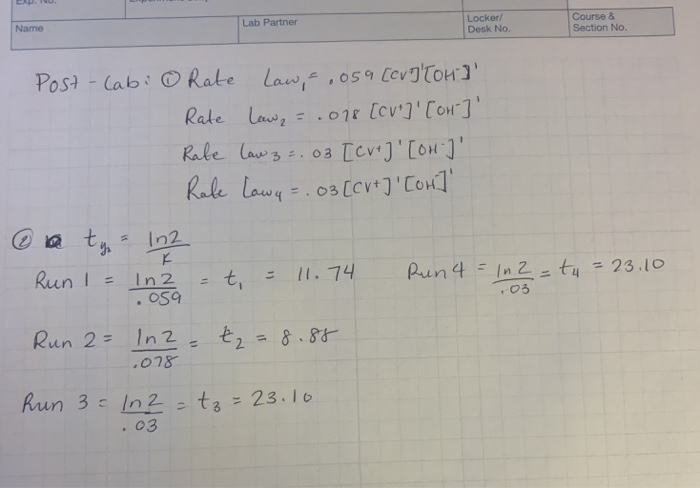 Name
Lab Partner
Locker/
Desk No.
Course &
Section No.
Post-Lab: ① Rate Law₁ = .059 [CV⁺]¹[OH⁻]¹
Rate Law₂ = .078 [CV⁺]¹[OH⁻]¹
Rate Law₃ = .03 [CV+]¹[OH⁻]¹
Rate Law₄ = .03 [CV+]¹[OH⁻]¹
② t½ = ln2/k
Run 1 = ln2/.059 = t₁ = 11.74
Run 4 = ln2/.03 = t₄ = 23.10
Run 2 = ln2/.078 = t₂ = 8.88
Run 3 = ln2/.03 = t₃ = 23.10